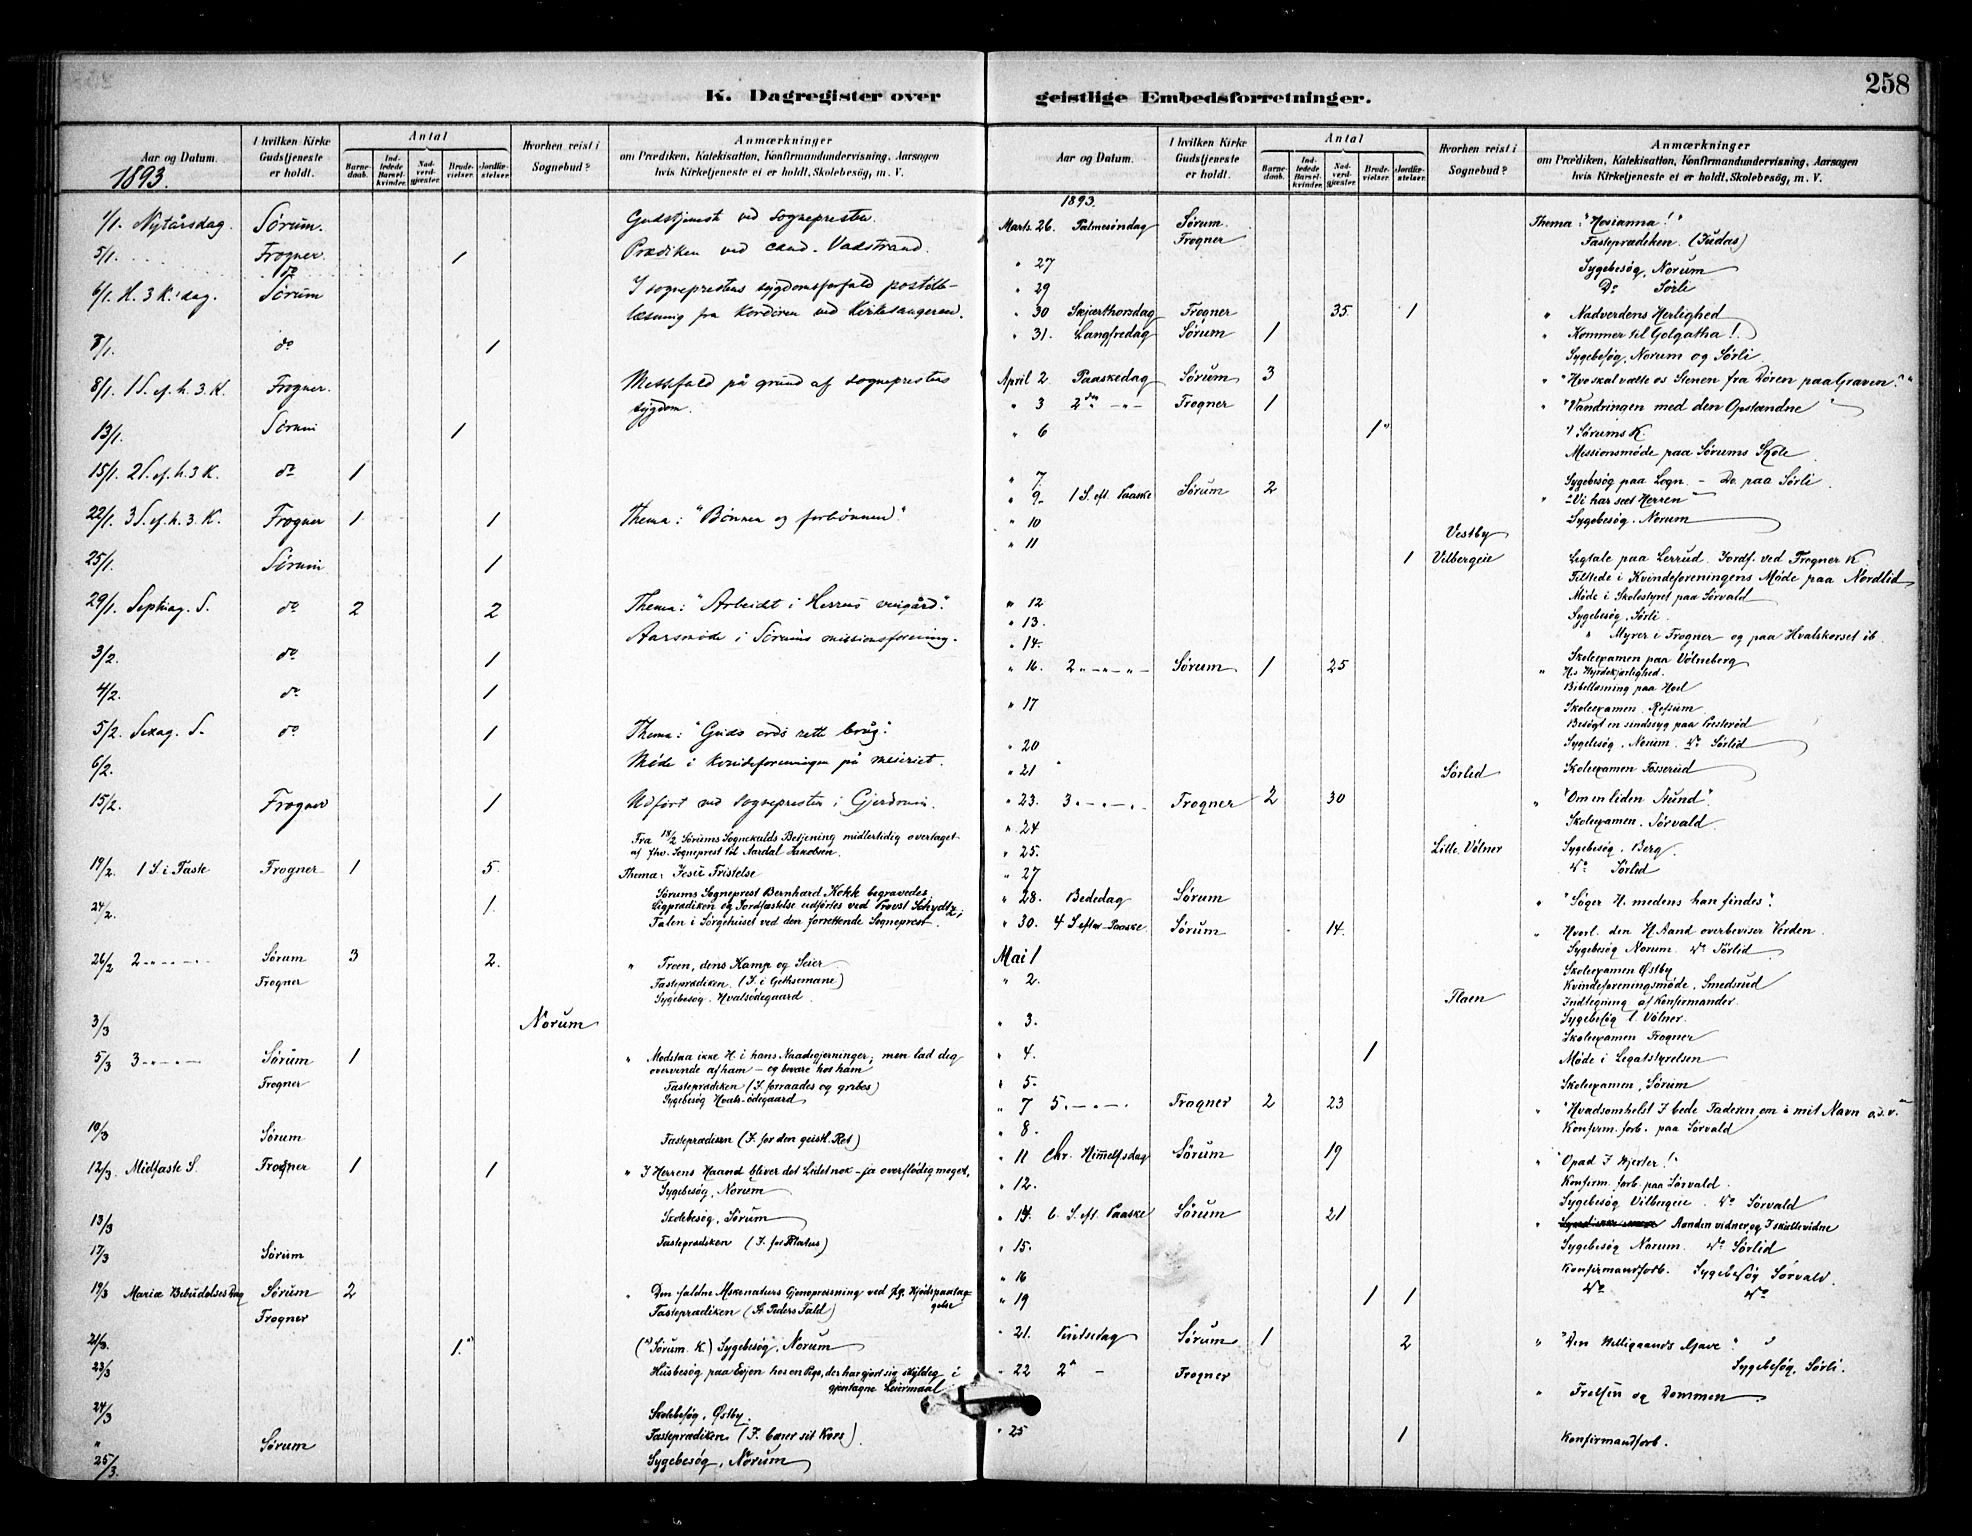 258
K. Dagregister over
Aar og Datum.
I hvilken Kirke Gudstjeneste er holdt.
Antal
Barnedaab.
Indledede Barselkvinder.
Nadverdgjæster.
Brudevielser.
Jordfæstelser.
Hvorhen reist i Sognebud?
Anmærkninger
om Prædiken, Katekisation, Konfirmandundervisning, Aarsagen
hvis Kirketjeneste ei er holdt, Skolebesøg, m. V.
1893.
1/1. Nytårsdag. Sørum. Gudstjenest ved sognepresten.
5/1. Frogner. 1 Prædiken ved cand. Vadstrand.
do
6/1. H. 3 K. dag. Sørum I sogneprestens sygdomsforfald postillæsning fra kordören ved Kirkesangeren.
7/1. do 1
8/1. 1 S. ef. h. 3. K. Frogner. Messfald på grund af sogneprestens sygdom.
13/1. Sørum 1
15/1. 2 S. ef. h. 3 K. do 1
22/1. 3 S. ef. h. 3. K. Frogner 1 1 Thema: "Bønnen og forbønnen".
25/1. Sørum 1
29/1. Septuag. S. do 2 2 Thema: "Arbeidt i Herrens vingård".
Aarsmøde i Sørums missionsforening.
3/2. do 1
4/2. do 1
5/2. Sexag. S. do 1 Thema: "Guds ords rette brug".
6/2. Møde i kvindeforeningen på meieriet.
15/2. Frogner 1 Udført ved Sognepresten i Gjerdrum.
Fra 18/2 Sørums Sognekalds Betjening midlertidig overtaget
af fhv. Sogneprest til Aardal Jakobsen.
19/2. 1 S. i Faste Frogner 1 5. Thema: Jesu Fristelse
24/2. 1. Sørums Sogneprest Bernhard Kokk begravedes
Ligprædiken og Jordfæstelse udførtes ved Provst Schydtz;
Talen i Sørgehuset ved den forrettende Sogneprest.
26/2 2 Sørum 3 2. " Troen, dens Kamp og Seier.
Frogner Fasteprædiken. (J. i Gethsemane)
Sygebesøg. Hvalsødegaard.
3/3 Norum
5/3 3 Sørum 1 " Modstaa ikke H. i hans Naadegjerninger; men lad dig
overvinde af ham – og bevare hos ham
Frogner Fasteprædiken (J. forraades og gribes)
Sygebesøg Hvals-ødegaard
10/3 Sørum Fasteprædiken (J. for den geistl. Ret)
12/3 Midfaste S. Frogner 1 1 " I Herrens Haand bliver det Lidet nok – ja overflødig meget.
Sygebesøg, Norum
13/3 Skolebesøg, Sørum
17/3 Sørum Fasteprædiken (J. for Pilatus)
19/3 Mariæ Bebudelses Dag Sørum 2 " Den faldne Mskenaturs Gjenoprejsning ved
Frogner Fasteprædiken (St. Peders Fald)
21/3. 1." (" Sørum K.) Sygebesøg, Norum
23/3 Husbesøg paa Evjen hos en Pige, der har gjort sig skyldig i
gjentagne Leiermaal
24/3 Skolebesøg, Østby.
" Sørum Fasteprædiken (J. bærer sit Kors)
25/3. Sygebesøg, Norum
geistlige Embedsforretninger.
Aar og Datum.
I hvilken Kirke Gudstjeneste er holdt.
Antal
Barnedaab.
Indledede Barselkvinder.
Nadverdgjæster.
Brudevielser.
Jordfæstelser.
Hvorhen reist i Sognebud?
Anmærkninger
om Prædiken, Katekisation, Konfirmandundervisning, Aarsagen
hvis Kirketjeneste ei er holdt, Skolebesøg, m. V.
1893.
Marts. 26. Palmesøndag Sørum Thema: "Hosianna!"
Frogner Fasteprædiken. (Judas)
" 27 Sygebesøg, Norum
" 29 Do Sørli
" 30 Skjærthorsdag Frogner 35 1 " Nadverdens Herlighed
" 31. Langfredag Sørum 1 " Kommer til Golgatha!
Sygebesøg, Norum og Sørli.
April 2. Paaskedag Sørum 3 " "Hvo skal vælte os Stenen fra Døren paa Graven."
" 3 2den Frogner 1 " "Vandringen med den Opstandne"
" 6 1" ") Sørums K.
Missionsmøde paa Sørums Skole
" 7. Sygebesøg paa Logn. – Do. paa Sørli
" 9 1 S. eft. Paaske Sørum 2 " "Vi har seet Herren"
" 10 Sygebesøg. Norum
" 11 Vestby
1 Vilbergeie Ligtale paa Lerrud. Jordf. ved Frogner K
Tilstede i Kvindeforeningens Møde paa Nordlid
" 12 Møde i Skolestyret paa Sørvald
" 13. Sygebesøg, Sørli
" 14. " Myrer i Frogner og paa Hvalskorset ib.
Skoleexamen paa Vølneberg
" 16. 2 Sørum 1 25 " H.s Hyrdekjærlighed.
Bibellæsning paa Hoel
" 17 Skoleexamen. Refsum
Besøgt en sindssyg paa Presterød
" 20 Sygebesøg, Norum. Do Sørlid
" 21 Sørlid Skoleexamen Fosserud
" 23. 3 Frogner 2 30 " "Om en liden Stund".
" 24 Skoleexamen. Sørvald
" 25. Lille Vølner Sygebesøg, Berg
" 27 Do Sørlid
" 28. Bededag Sørum " "Søger H. medens han findes".
" 30. 4 S. efter Paaske Sørum 14. " Hvorl. den H. Aand overbeviser Verden.
Sygebesøg Norum. Do Sørlid
Mai 1 Skoleexamen Østby
" 2. Kvindeforeningsmøde, Smedsrud
Flaen Indtegning af Konfirmander.
" 3. Sygebesøg l. Vølner.
Skoleexamen Frogner
" 4. 1 Møde i Legatstyrelsen
" 5. Skoleexamen, Sørum
" 7 5. Frogner 2 23 " "Hvadsomhelst I bede Faderen om i mit Navn o.s.v."
" 8. Konfirm. forb. paa Sørvald
" 11 Chr. Himmelfsdag Sørum 19 " "Opad I Hjerter!"
" 12. Konfirm. forb. paa Sørvald.
Sygebesøg Vilbergeie. Do Sørvald
" 14. 6. S. eft. Paaske Sørum 21 " Aanden vidner og I skulle vidne
" 15. Sygebesøg Norum. Do Sørlid
" 16 Konfirmandforb. Sygebesøg Sørvald.
" 19 1 1 Do Do
" 21. Pintsedag Sørum 1 2 " "Den Helligaands Gave".
Sygebesøg, Sørli.
" 22 2 Frogner " Frelsen og Dommen
" 25 1 Konfirmandforb.